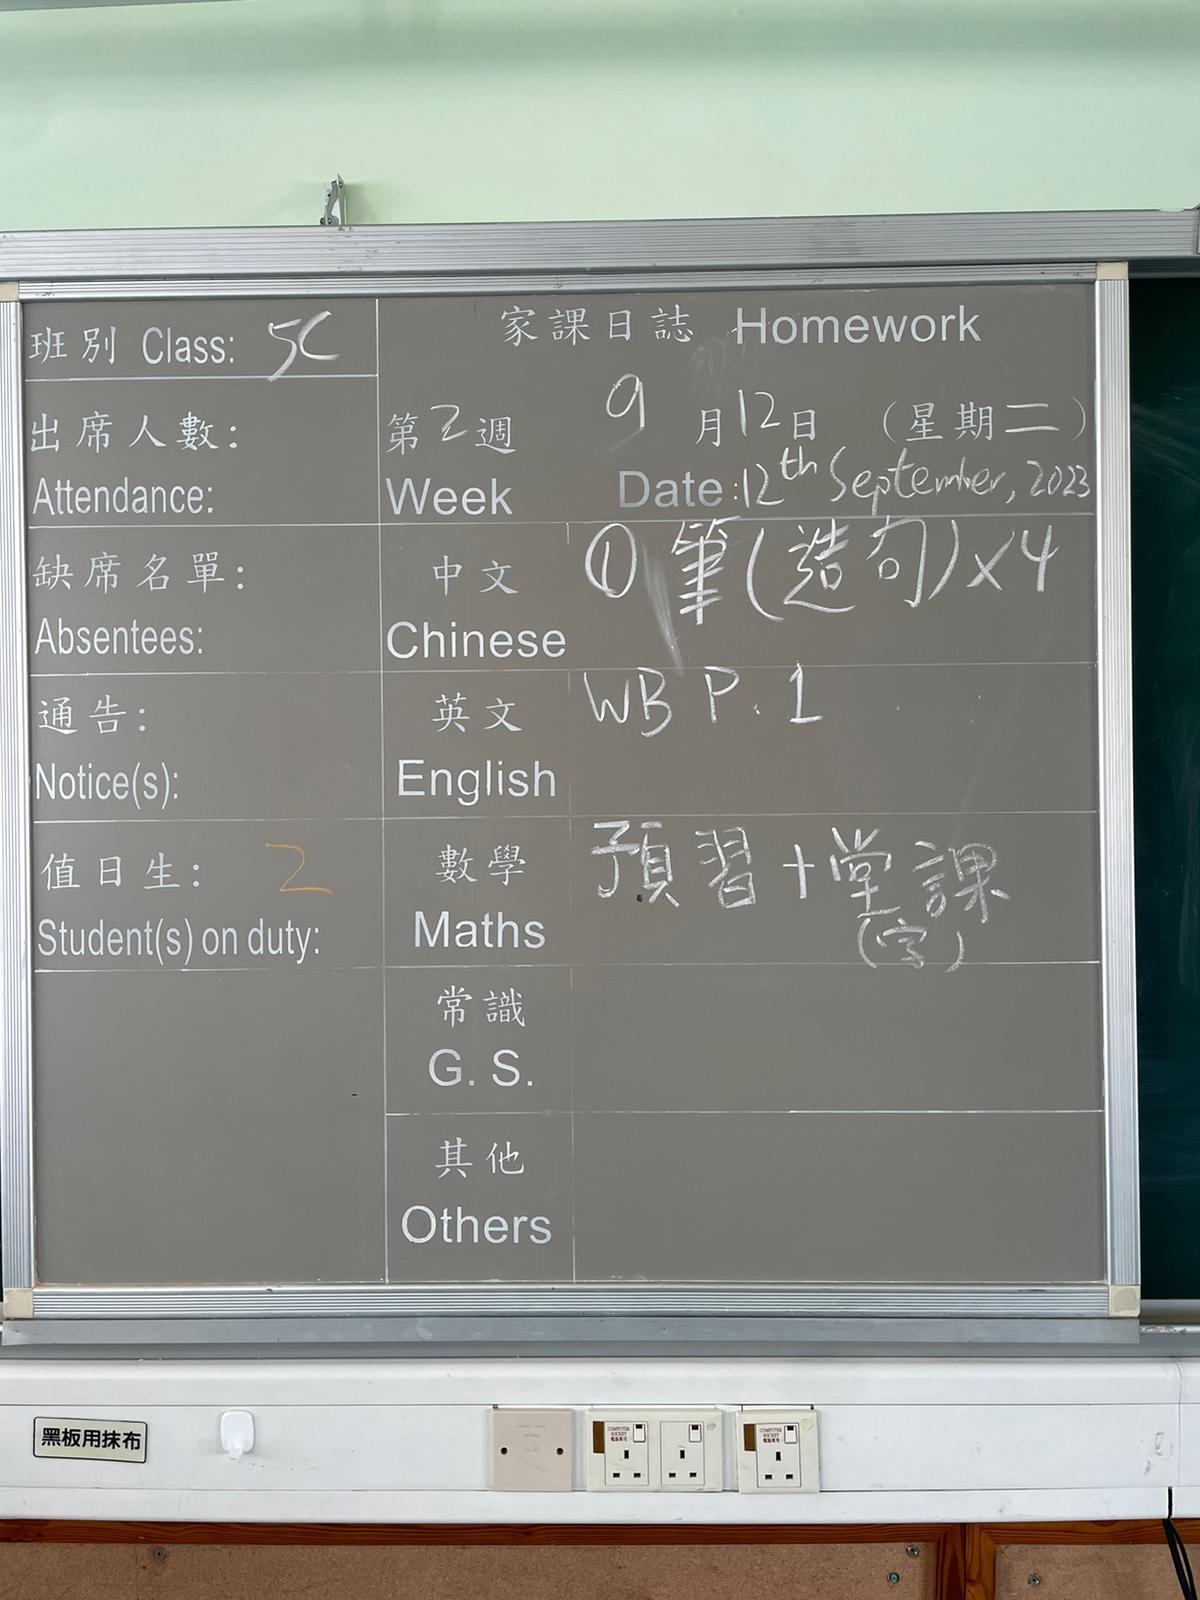 班別 Class: 5C
家課日誌 Homework
出席人數:
Attendance:
第2週 9月12日 (星期二)
Week Date: 12th September, 2023
缺席名單:
Absentees:
中文 ① 筆(造句)×4
Chinese
通告:
Notice(s):
英文 WB P. 1
English
值日生: 2
Student(s) on duty:
數學 預習+堂課
(字)
Maths
常識
G. S.
其他
Others
黑板用抹布
COMPUTER
SOCKET
電腦專用
COMPUTER
SOCKET
電腦專用